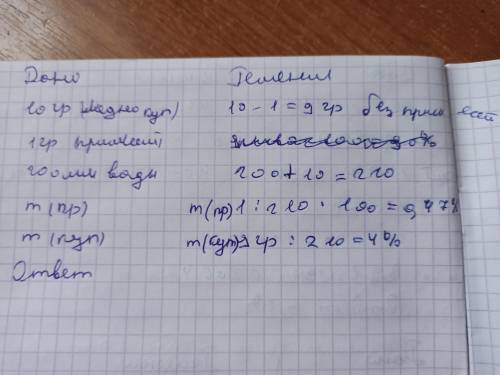 Дано Решения
10 гр (медно куп) 10 - 1 = 9 гр без примесей
1 гр примесей
200 мл воды 200 + 10 = 210
m (пр) m (пр) 1 : 210 · 100 = 0,47%
m (куп) m (куп) 9 гр : 210 = 4%
Ответ